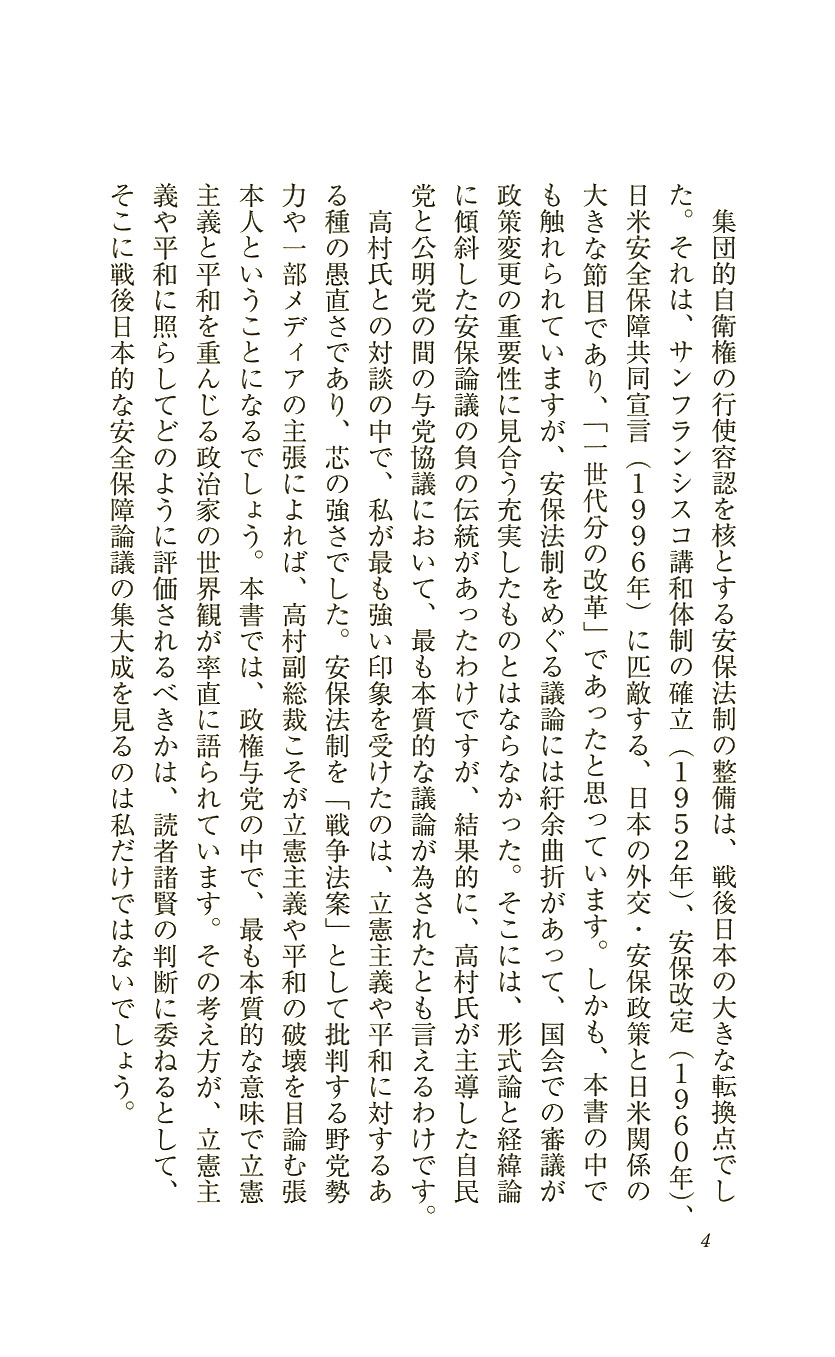 集団的自衛権の行使容認を核とする安保法制の整備は、戦後日本の大きな転換点でし
た。それは、サンフランシスコ講和体制の確立（1952年）、安保改定（1960年）、
日米安全保障共同宣言（1996年）に匹敵する、日本の外交・安保政策と日米関係の
大きな節目であり、「一世代分の改革」であったと思っています。しかも、本書の中で
も触れられていますが、安保法制をめぐる議論には紆余曲折があって、国会での審議が
政策変更の重要性に見合う充実したものとはならなかった。そこには、形式論と経緯論
に傾斜した安保論議の負の伝統があったわけですが、結果的に、高村氏が主導した自民
党と公明党の間の与党協議において、最も本質的な議論が為されたとも言えるわけです。
高村氏との対談の中で、私が最も強い印象を受けたのは、立憲主義や平和に対するあ
る種の愚直さであり、芯の強さでした。安保法制を「戦争法案」として批判する野党勢
力や一部メディアの主張によれば、高村副総裁こそが立憲主義や平和の破壊を目論む張
本人ということになるでしょう。本書では、政権与党の中で、最も本質的な意味で立憲
主義と平和を重んじる政治家の世界観が率直に語られています。その考え方が、立憲主
義や平和に照らしてどのように評価されるべきかは、読者諸賢の判断に委ねるとして、
そこに戦後日本的な安全保障論議の集大成を見るのは私だけではないでしょう。
4